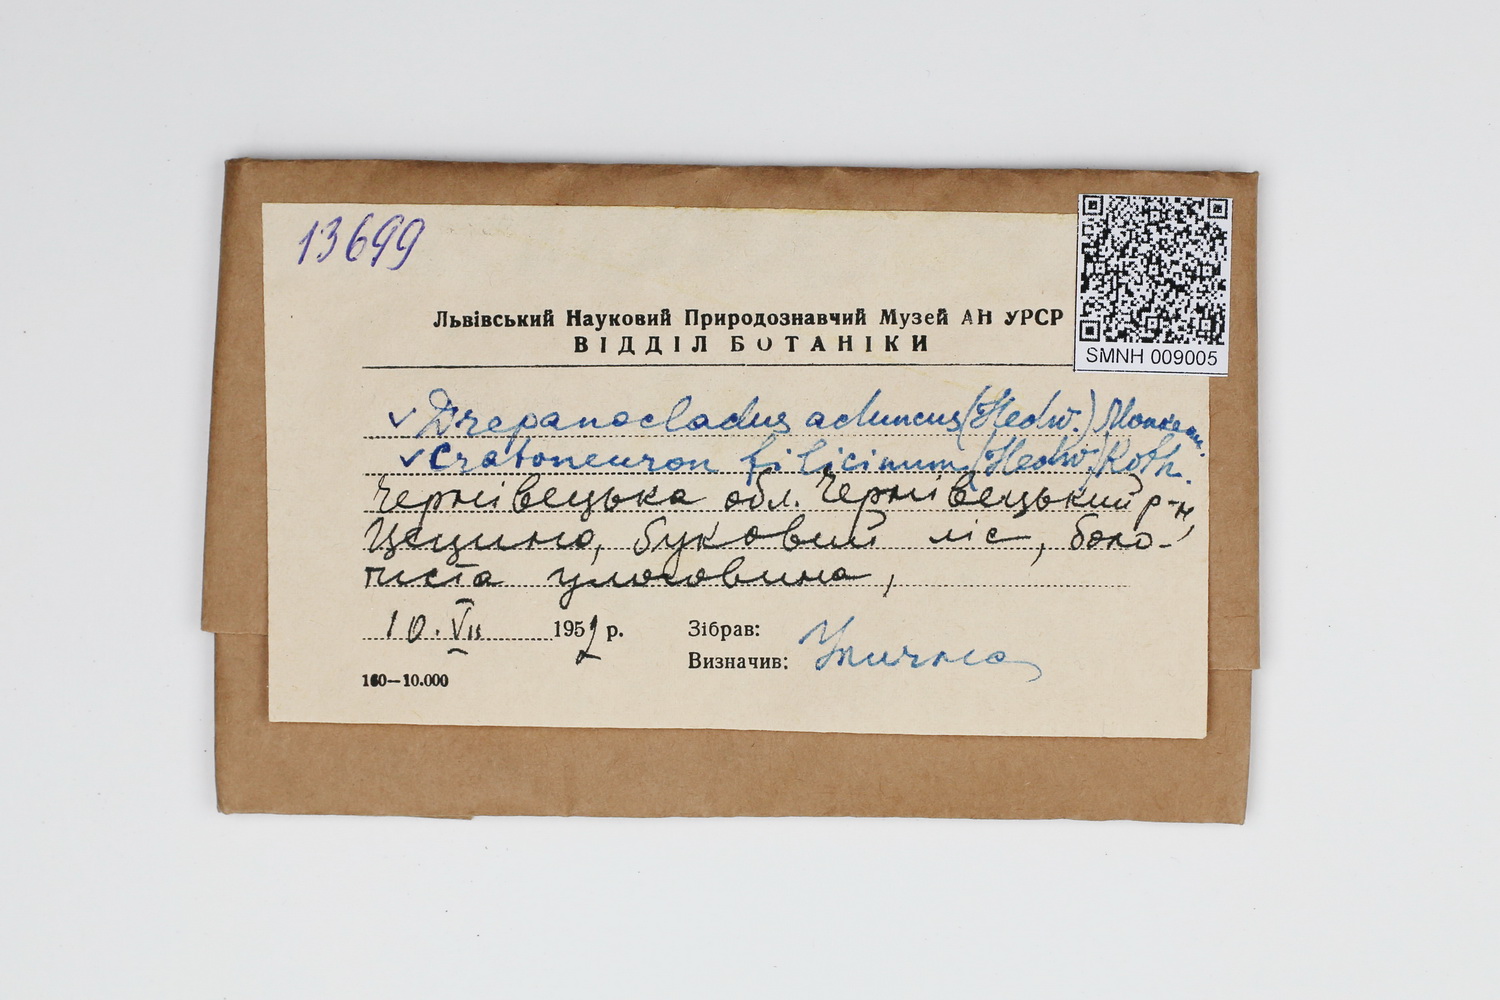 13699
SMNH 009005
Львівський Науковий Природознавчий Музей АН УРСР
ВІДДІЛ БОТАНІКИ
✓ Drepanocladus aduncus (Hedw.) Moenkem.
✓ Cratoneuron filicinum (Hedw.) Roth.
Чернівецька обл. Чернівецький р-н,
Цецино, буковий ліс, боло-
тиста улоговина,
10.VII 1952 р. Зібрав:
Визначив: Улична
160—10.000